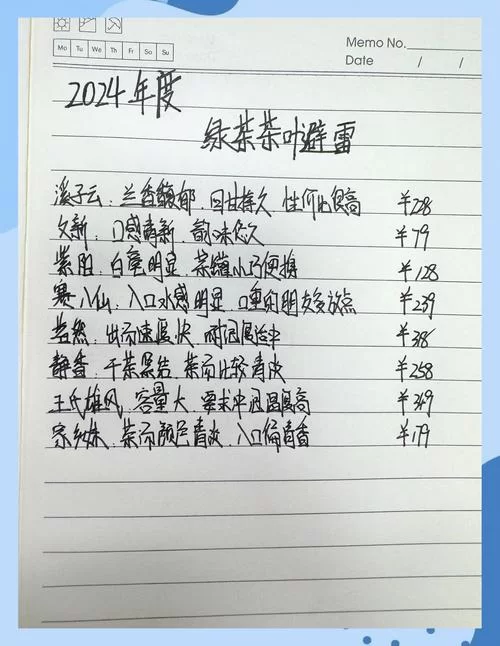 Mo Tu We Th Fr Sa Su
Memo No.
Date / /
2024年度
绿茶茶叶避雷
溪子云:兰香馥郁.回甘持久 性价比很高 ¥228
文新:口感清新.韵味悠久 ¥79
紫阳:白毫明显.茶罐小巧便携 ¥128
赛八仙:入口水感明显.口重的朋友多放点 ¥239
若然:出汤速度快.耐泡度适中 ¥386
静香:干茶紧结.茶汤比较青淡 ¥258
王氏雄风:容量大.要求冲泡温度高 ¥349
宗乡妹:茶汤颜色青淡.入口偏青香 ¥179